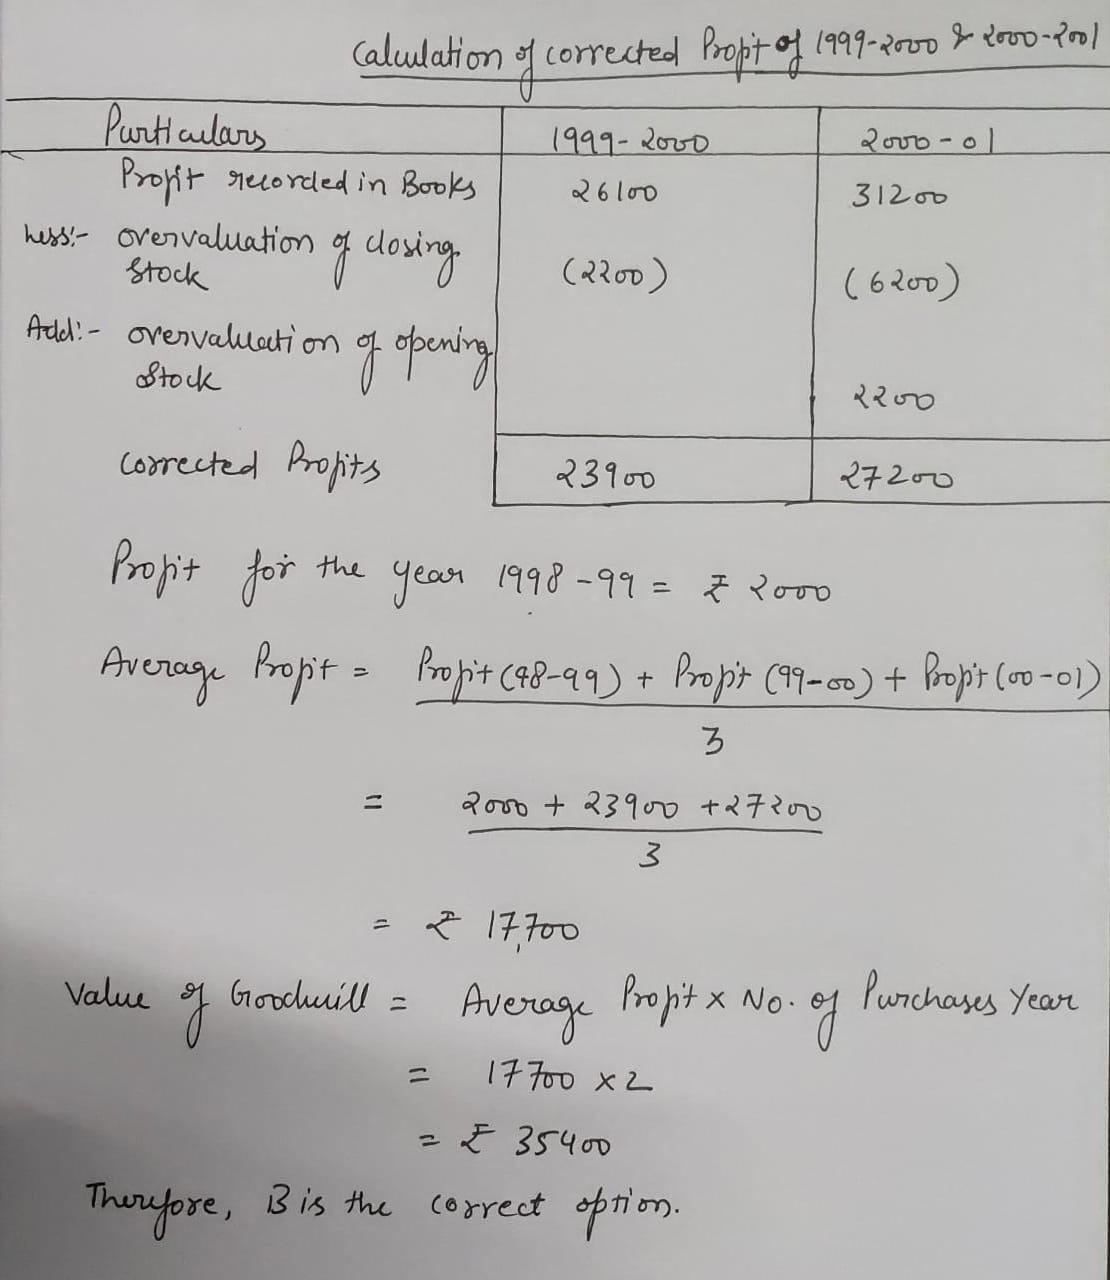 Calculation of corrected Profit of 1999-2000 & 2000-2001
Particulars 1999-2000 2000-01
Profit recorded in Books 26100 31200
Less:- overvaluation of closing
Stock (2200) (6200)
Add:- overvaluation of opening
Stock 2200
Corrected Profits 23900 27200
Profit for the year 1998-99 = ₹ 2000
Average Profit = Profit (98-99) + Profit (99-00) + Profit (00-01)
3
= 2000 + 23900 + 27200
3
= ₹ 17,700
Value of Goodwill = Average Profit x No. of Purchases Year
= 17700 x 2
= ₹ 35400
Therefore, B is the correct option.